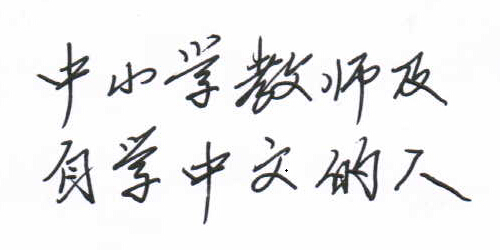 中小学教师及
自学中文的人